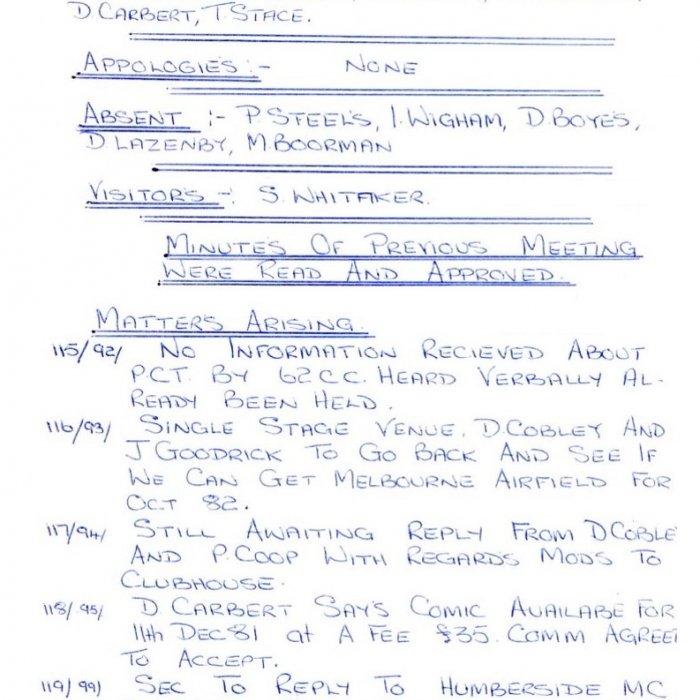 D CARBERT, T. STACE.
APPOLOGIES :- NONE
ABSENT :- P. STEELS, I. WIGHAM, D. BOYES,
D LAZENBY, M. BOORMAN
VISITORS -: S. WHITAKER.
MINUTES OF PREVIOUS MEETING
WERE READ AND APPROVED.
MATTERS ARISING.
115/92/ NO INFORMATION RECIEVED ABOUT
P.C.T. BY 62 C.C. HEARD VERBALLY AL-
READY BEEN HELD.
116/93/ SINGLE STAGE VENUE. D. COBLEY AND
J GOODRICK TO GO BACK AND SEE IF
WE CAN GET MELBOURNE AIRFIELD FOR
OCT 82.
117/94/ STILL AWAITING REPLY FROM D COBLE
AND P. COOP WITH REGARDS MODS TO
CLUBHOUSE.
118/95/ D CARBERT SAY'S COMIC AVAILABE FOR
11th DEC 81 at A FEE £35. COMM AGREE
TO ACCEPT.
119/99) SEC TO REPLY TO HUMBERSIDE MC